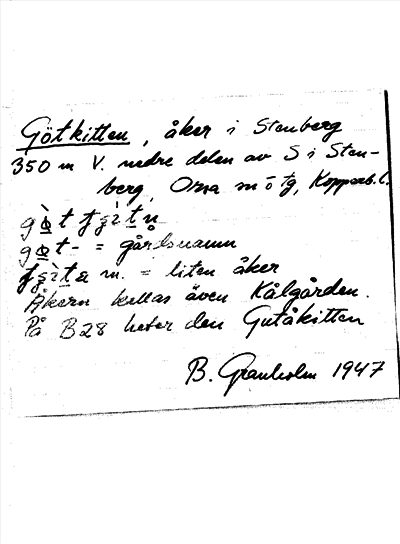 Götkitten, åker i Stenberg
350 m V. nedre delen av S i Sten-
berg, Orsa sn o tg, Kopparb. l.
gø̀t
gøt- = gårdsnamn
m. = liten åker
Åkern kallas även Kålgården.
På B28 heter den Gutåkitten
B. Granholm 1947